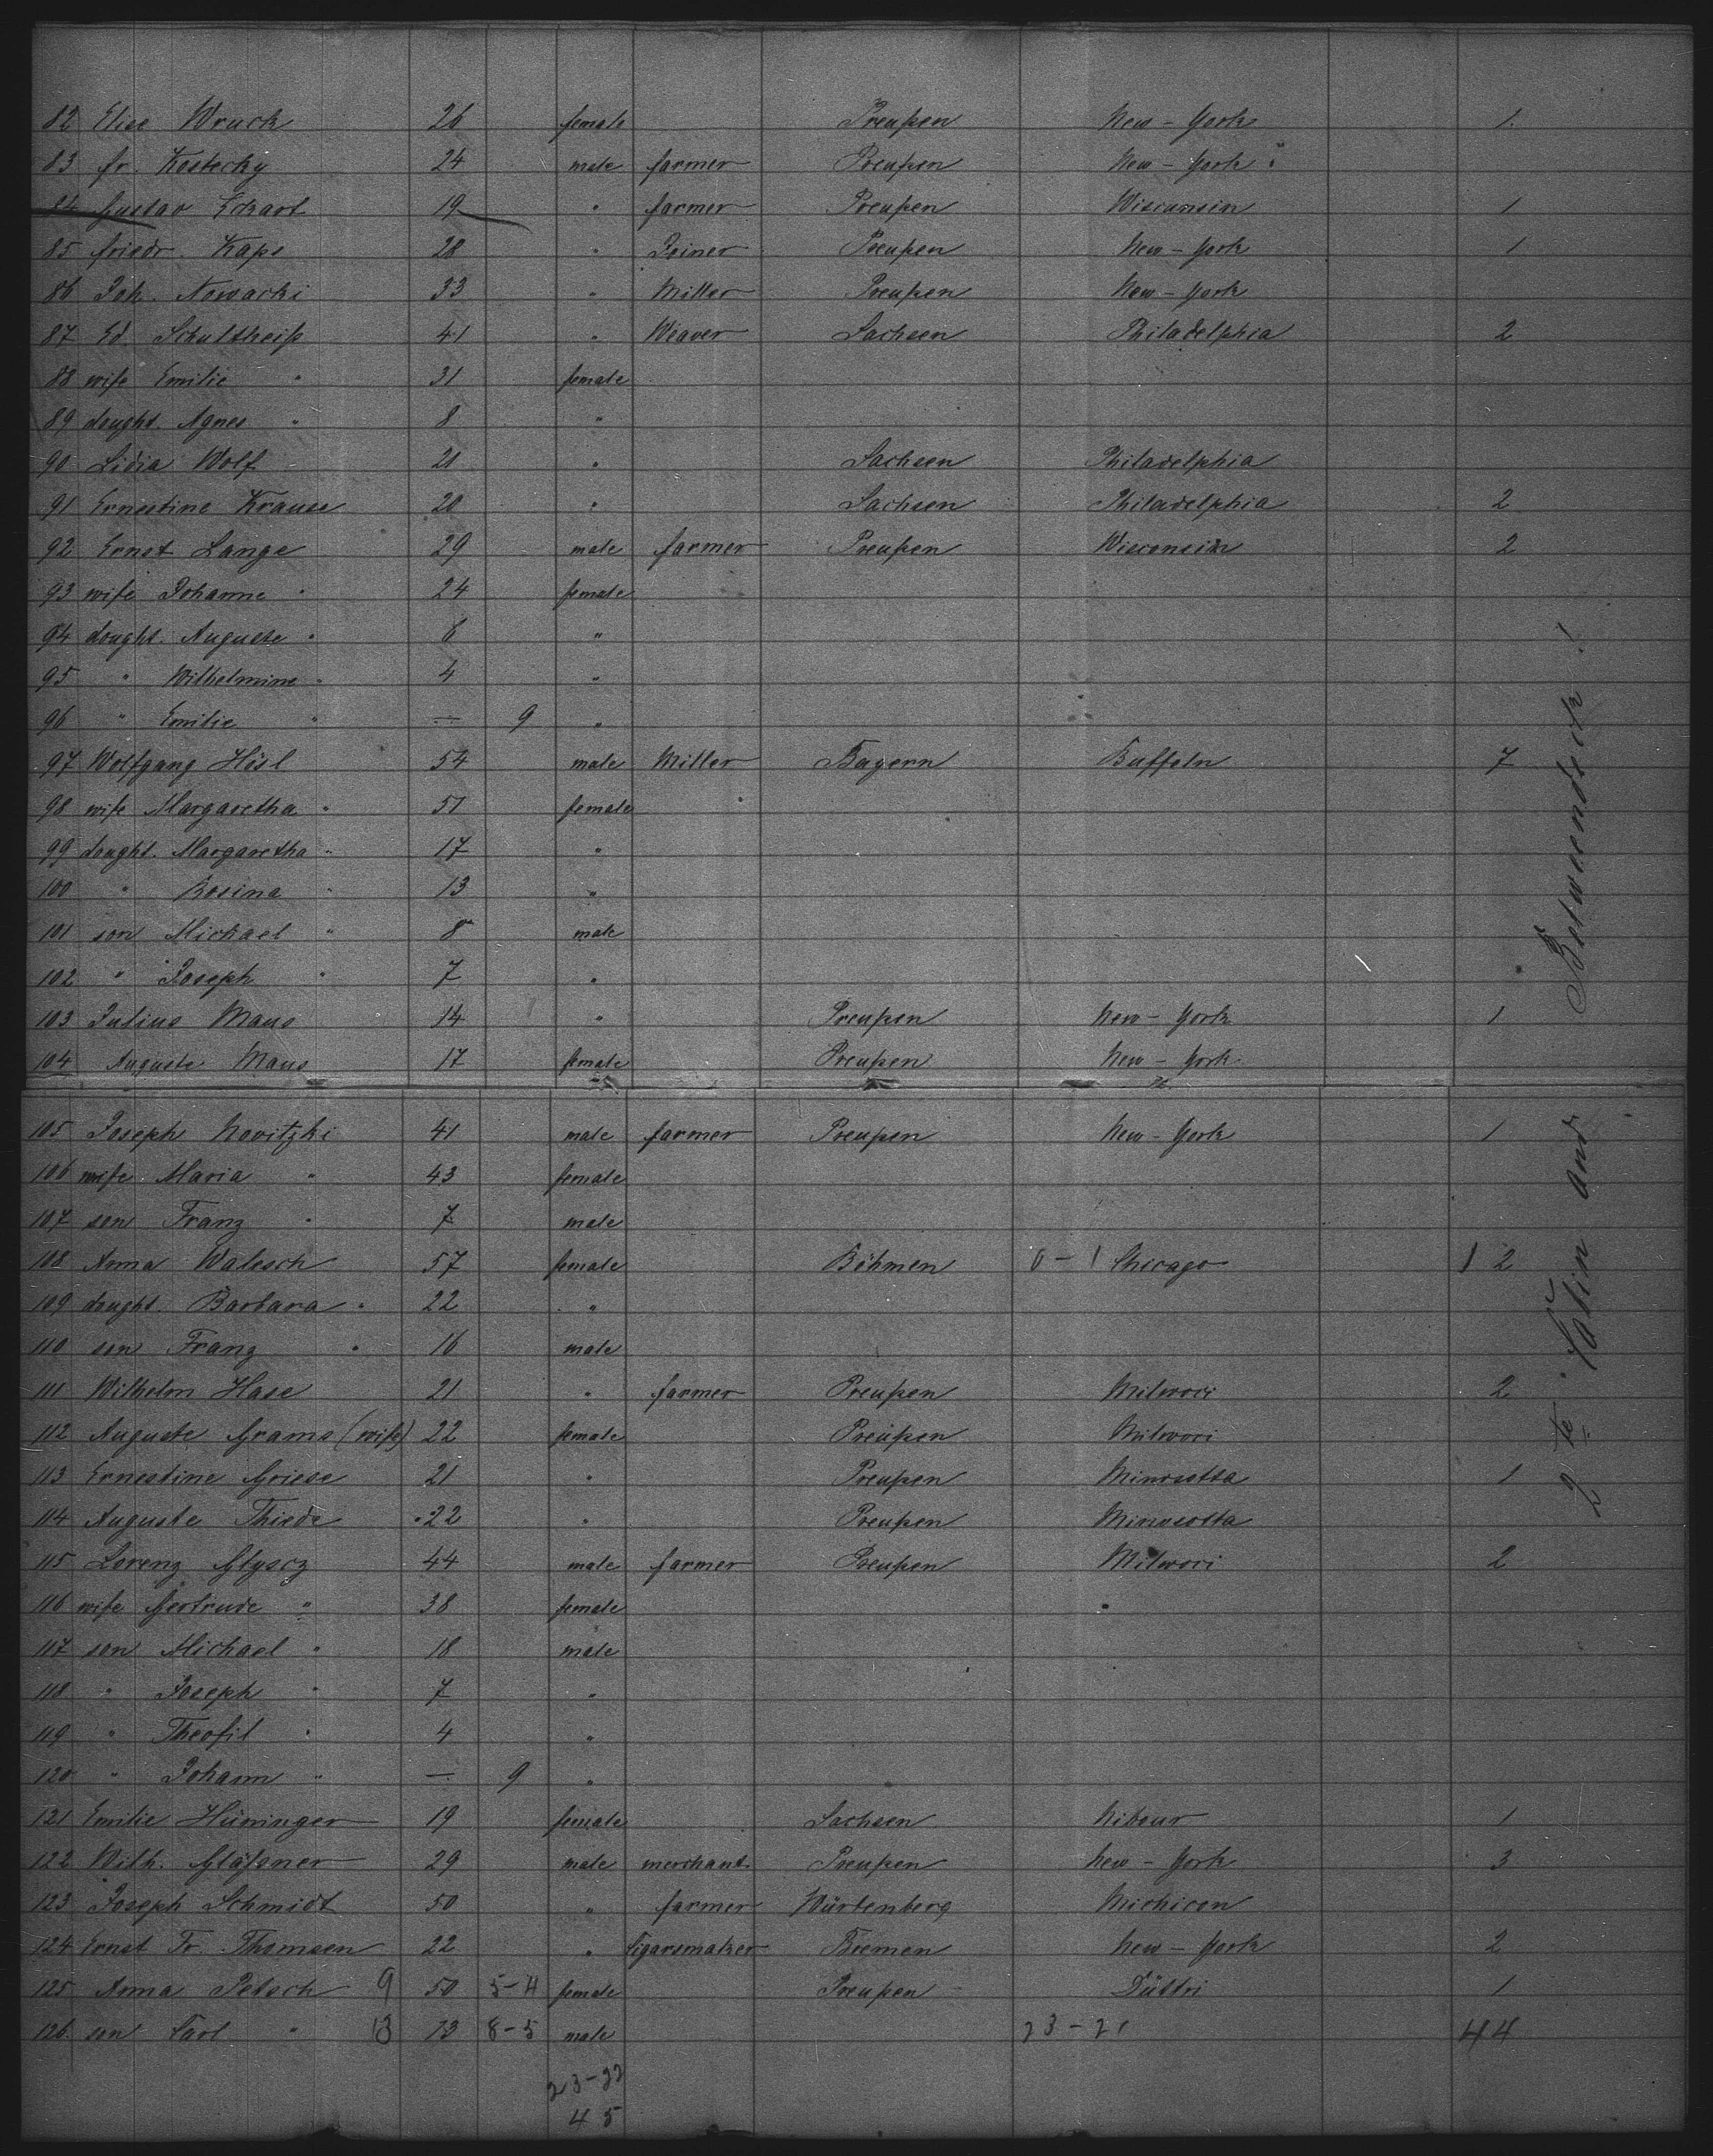 82 Elise Wruck 26 female Preußen New-York 1.
83 fr. Kostecky 24 male farmer Preußen New-York "
84 Gustav Eckart 19 " farmer Preußen Wiscunsin 1
85 friedr. Kaps 28 " Joiner Preußen New-York 1
86 Joh. Nowacki 33 " Miller Preußen New-York
87 Ed. Schultheiß 41 " Weaver Sachsen Philadelphia 2
88 wife Emilie " 31 female
89 dought. Agnes " 8 "
90 Lidia Wolf 21 " Sachsen Philadelphia
91 Ernestine Krause 20 " Sachsen Philadelphia 2
92 Ernst Lange 29 male farmer Preußen Wisconsin 2
93 wife Johanne " 24 female
94 dought. Auguste " 6 "
95 " Wilhelmine " 4 "
96 " Emilie " — 9 "
97 Wolfgang Hösl 54 male Miller Bayern Buffeln 7
98 wife Margaretha " 51 female
99 dought. Margaretha " 17 "
100 " Rosina " 13 "
101 son Michael " 8 male
102 " Joseph " 7 "
103 Julius Maus 14 " Preußen New-York 1
104 Auguste Maus 17 female Preußen New-York
105 Joseph Novitzki 41 male farmer Preußen New-York 1
106 wife Maria " 43 female
107 son Franz " 7 male
108 Anna Walesch 57 female Böhmen 0-1 Chicago 1 2
109 dought. Barbara " 22 "
110 son Franz " 16 male
111 Wilhelm Hase 21 " farmer Preußen Milwoci 2
112 Auguste Grams (wife) 22 female Preußen Milwoci
113 Ernestine Griese 21 " Preußen Minosotta 1
114 Auguste Thiede 22 " Preußen Minosotta
115 Lorenz Glyscz 44 male farmer Preußen Milwoci 2
116 wife Gertrude " 38 female
117 son Michael " 18 male
118 " Joseph " 7 "
119 " Theofil " 4 "
120 " Johann " — 9 "
121 Emilie Hüninger 19 female Sachsen Nibour 1
122 Wilh. Gläßner 29 male merchant. Preußen New-York 3
123 Joseph Schmidt 50 " farmer Würtenberg Michicon
124 Ernst Fr. Thomsen 22 " Cigarsmaker Bremen New-York 2
125 Anna Petsch 9 50 5-4 female Preußen Düttri 1
126 son Carl " 13 13 8-5 male 23-21 44
23-22
45
2te Cotin and Betweendeck!